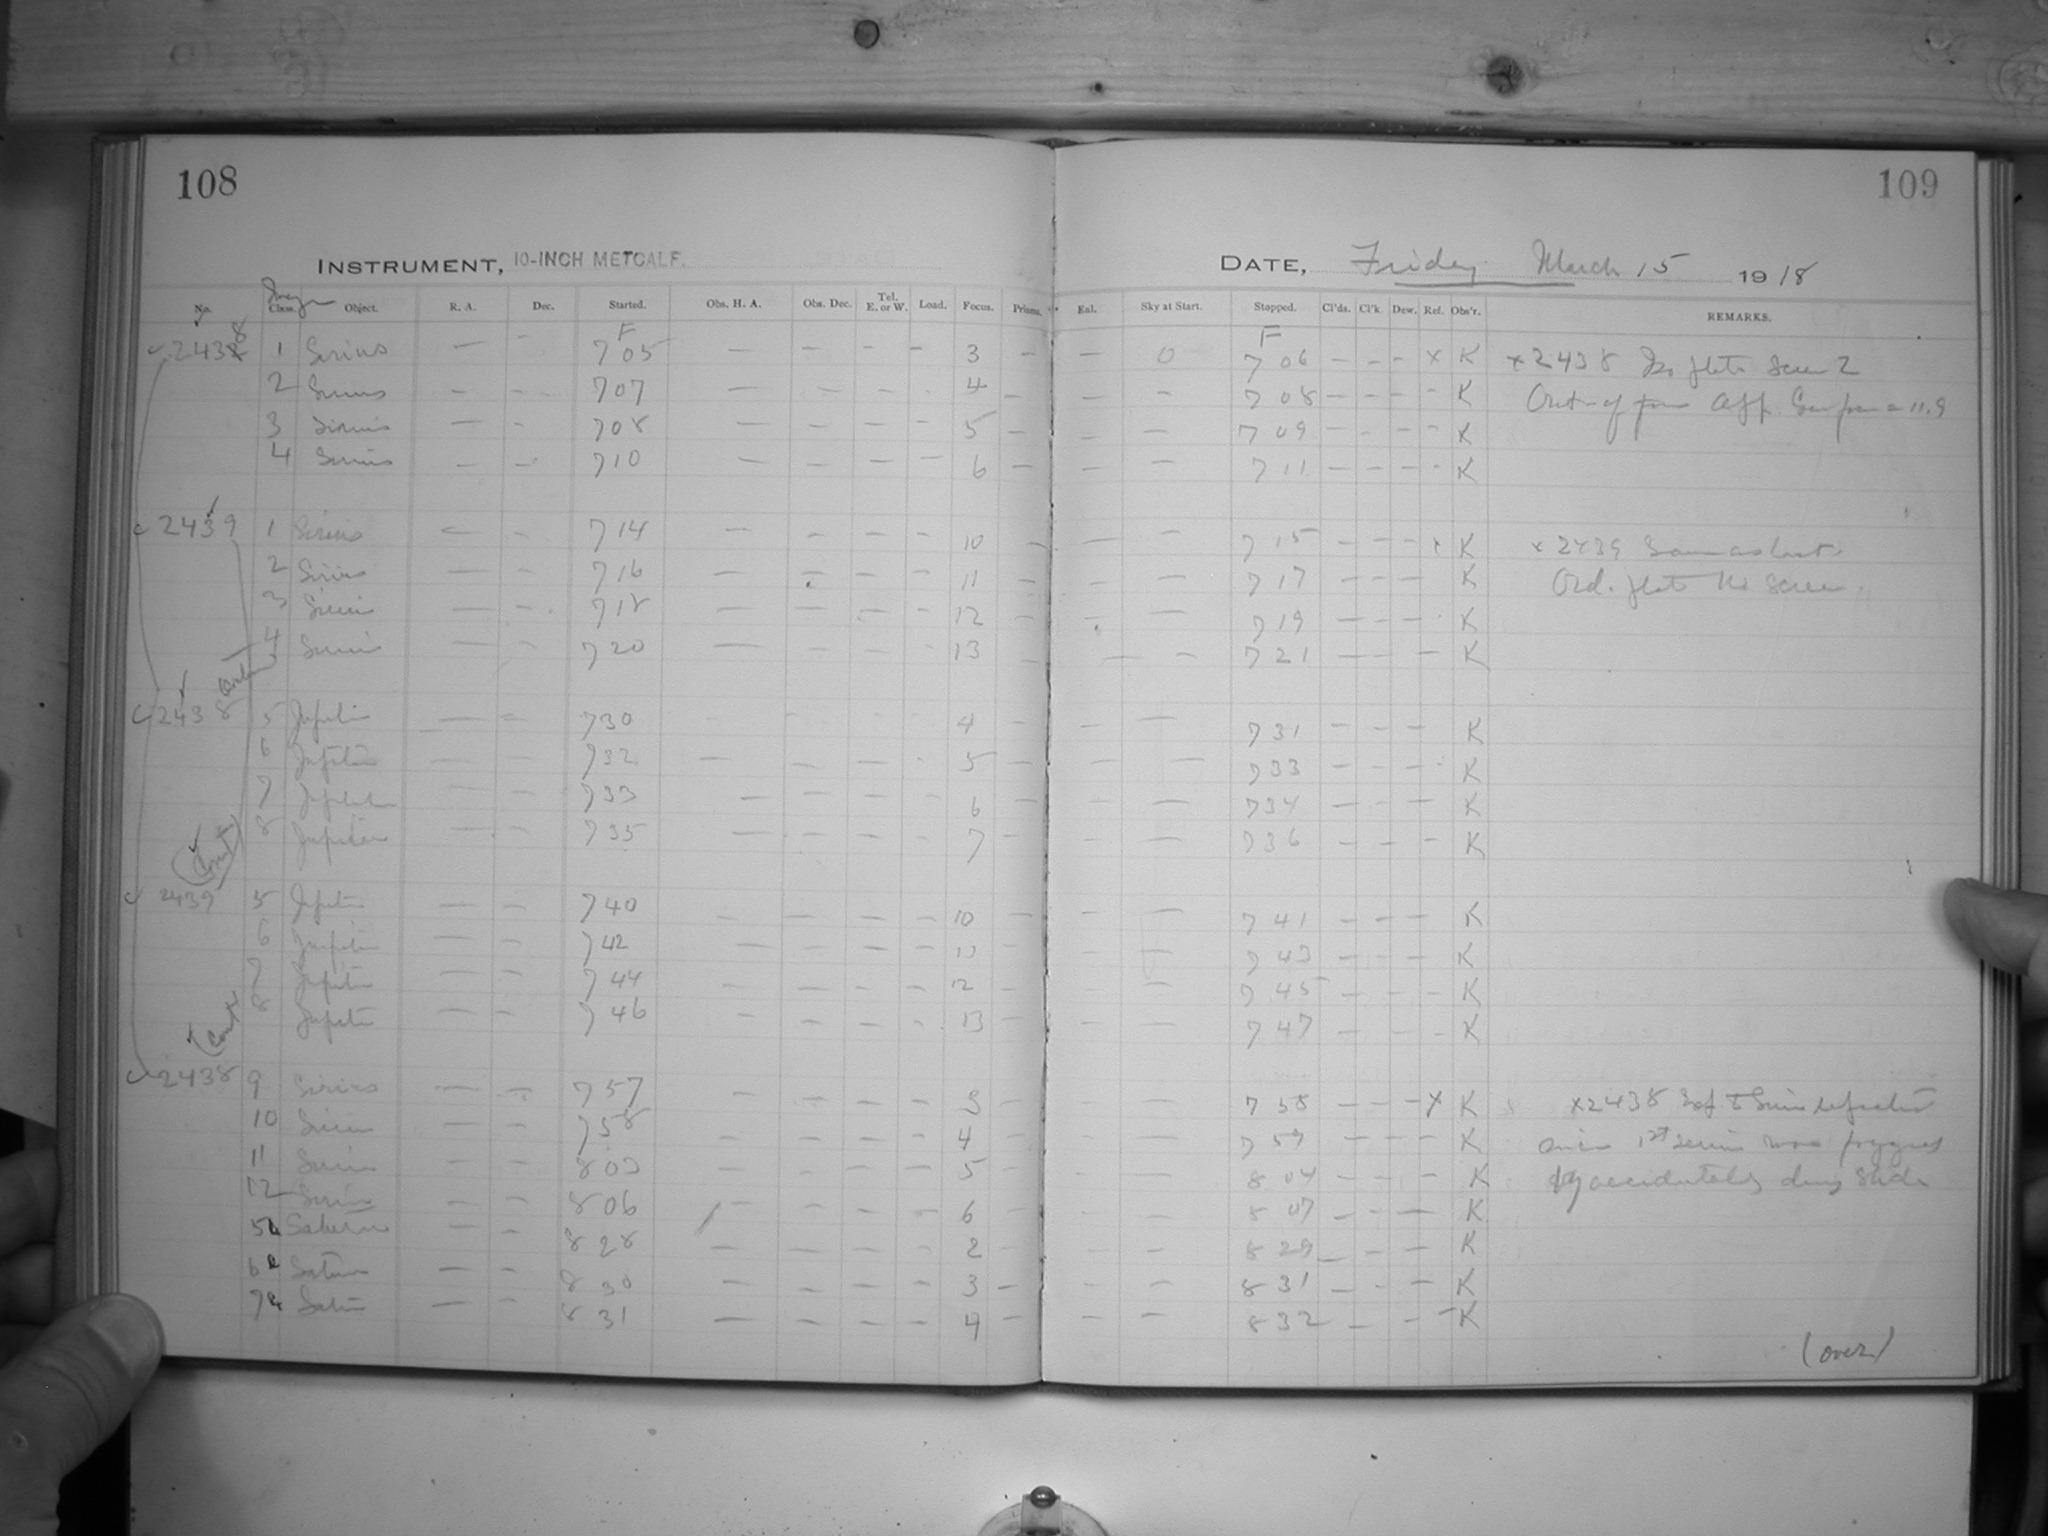 108
109
INSTRUMENT, 10-INCH METCALF.
DATE, Friday March 15 1918
No. Class. Object. R. A. Dec. Started. Obs. H. A. Obs. Dec. Tel. E. or W. Load. Focus. Prisms. Eal. Sky at Start. Stopped. Cl'ds. Cl'k. Dew. Ref. Obs'r. REMARKS.
F F
2438 1 Sirius — - 7 05 — - — - 3 - — 0 7 06 - - - x K x 2438 Iso plate Screen 2
2 Sirius - - 7 07 — - - - 4 - - - 7 08 - - - K Out of
3 Sirius — - 7 08 — - - - 5 - - — 7 09 - - - - K
4 Sirius - - 7 10 — - — — 6 - - — 7 11 - - - - K
2439 1 Sirius - - 7 14 — - - - 10 — - 7 15 - - - x K x 2439 Same as last
2 Sirius — - 7 16 — - - - 11 - - - 7 17 - - - K Ord. plate No screen.
3 Sirius — - 7 18 — - - - 12 - - — 7 19 - - - - K
4 Sirius — - 7 20 — - - - 13 - — - 7 21 - - - K
2438 5 Jupiter — - 7 30 - - - - 4 - - — 7 31 - - - K
6 Jupiter — - 7 32 - - - - 5 - - — 7 33 - - - K
7 Jupiter — - 7 33 — - - - 6 - - — 7 34 - - - - K
8 Jupiter — - 7 35 — - - - 7 - - — 7 36 - - - K
(Cont)
2439 5 Jupiter — - 7 40 - - - - 10 - - — 7 41 - - - K
6 Jupiter — - 7 42 — - - - 11 - - — 7 43 - - - K
7 Jupiter — - 7 44 - - - - 12 - - - 7 45 - - - K
8 Jupiter — - 7 46 - - - - 13 - - — 7 47 - - - K
(Cont)
2438 9 Sirius — - 7 57 - - - - 3 - - - 7 58 - - - x K x 2438 Sirius repeated
10 Sirius — - 7 58 - - - - 4 - - - 7 59 - - - - K since 1st series was fogged
11 Sirius - - 8 03 - - - - 5 - - - 8 04 - - - K accidentally slide
12 Sirius — - 8 06 - - - - 6 - - - 8 07 - - — K
5a Saturn — - 8 28 - - - - 2 - - - 8 29 - - - K
6a Saturn — - 8 30 - - - - 3 - - - 8 31 - - - K
7a Saturn — - 8 31 — - - - 4 - - - 8 32 - - - K
(over)